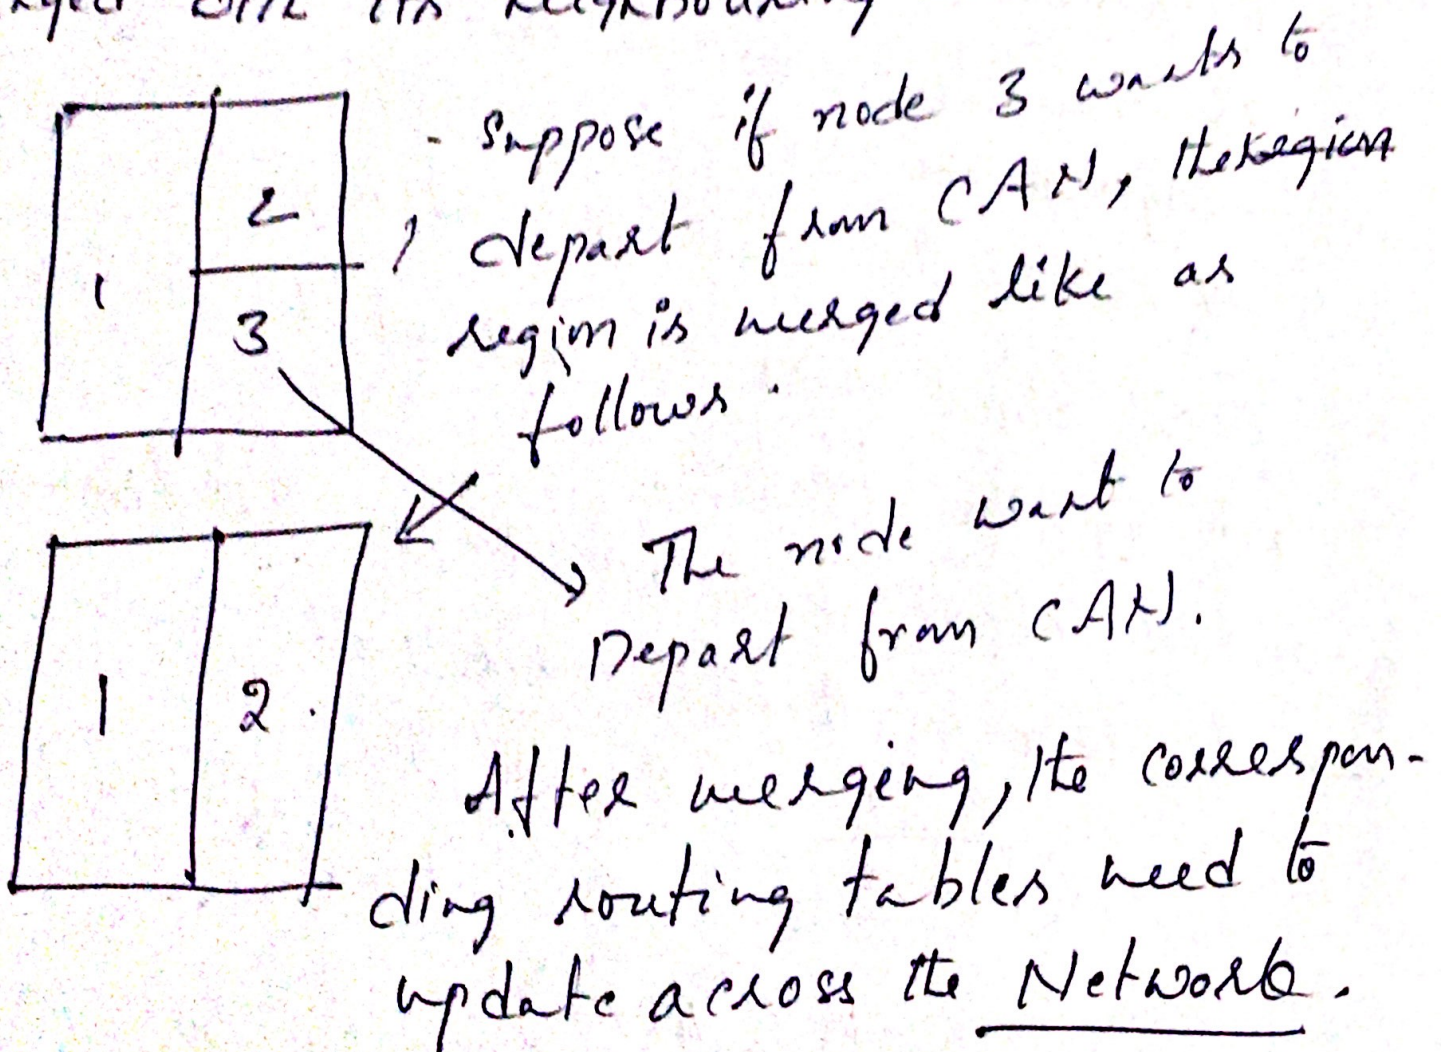 with its neighbouring
- Suppose if node 3 wants to
depart from CAN, the region
region is merged like as
follows.
1
2
3
The node want to
Depart from CAN.
1
2
After merging, the correspon-
ding routing tables need to
update across the Network.